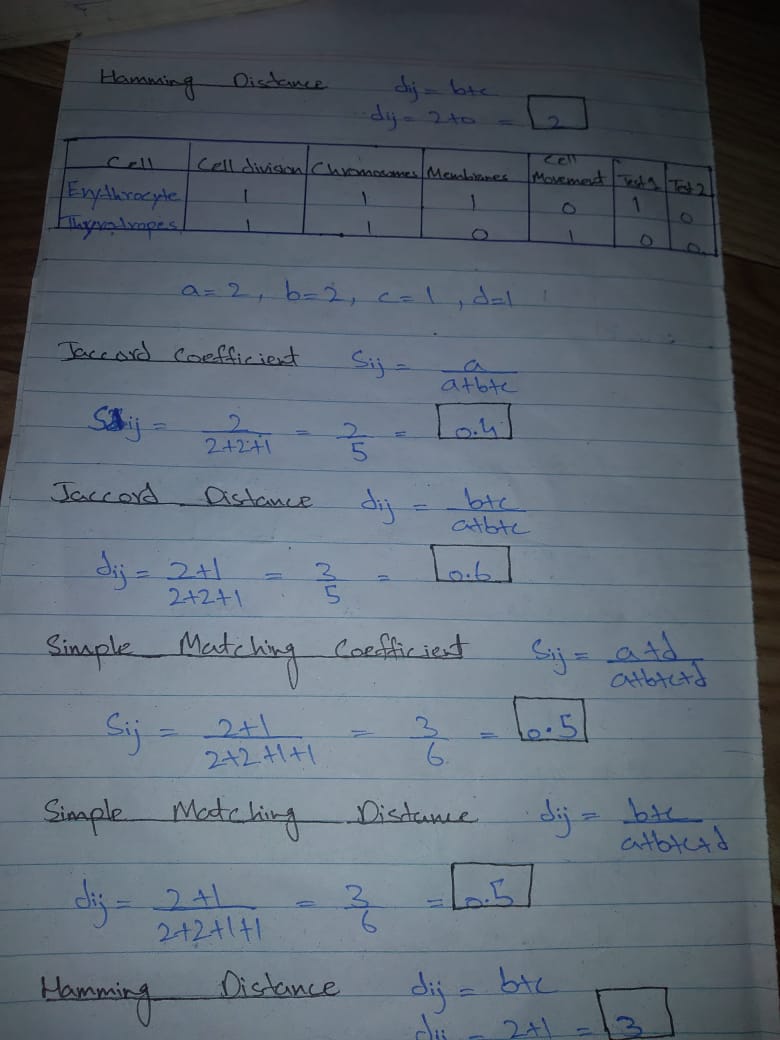 Hamming Distance dij = b+c
dij = 2+0 = 2
Cell Cell division Chromosomes Membranes Cell Movement Test 1 Test 2
Erythrocyte 1 1 1 0 1 0
1 1 0 1 0 0
a=2, b=2, c=1, d=1
Jaccord Coefficient Sij = a/a+b+c
Sij = 2/2+2+1 = 2/5 = 0.4
Jaccord Distance dij = b+c/a+b+c
dij = 2+1/2+2+1 = 3/5 = 0.6
Simple Matching Coefficient Sij = a+d/a+b+c+d
Sij = 2+1/2+2+1+1 = 3/6 = 0.5
Simple Matching Distance dij = b+c/a+b+c+d
dij = 2+1/2+2+1+1 = 3/6 = 0.5
Hamming Distance dij = b+c
dij = 2+1 = 3